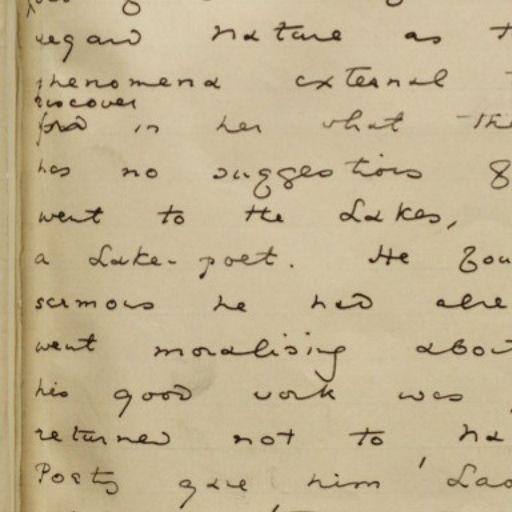 regard nature as
phenomena external
discover
find in her what the
has no suggestions
went to the Lakes,
a Lake-poet. He fou
sermons he had alre
went moralising abou
his good work was
returned not to Na
Poetry gave him 'Lao